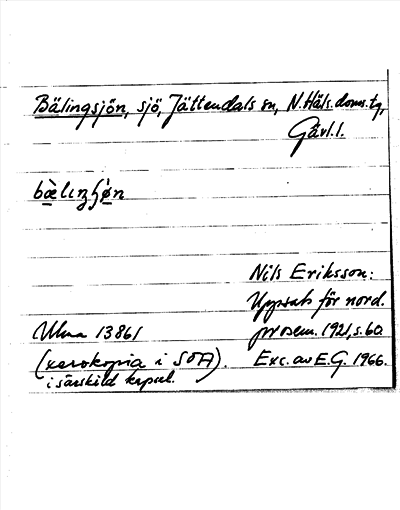 Bälingsjön, sjö, Jättendals sn, N. Häls. doms.tg,
Gävl.l.
Nils Eriksson:
Uppsats för nord.
Ulma 13861 prosem. 1921, s. 60.
(xerokopia i SOA). Exc. av E.G. 1966.
i särskild kapsel.